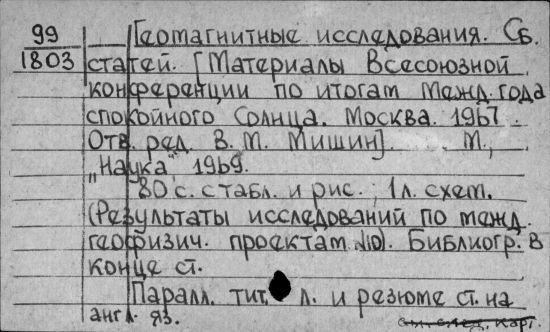 99
1803
Геомагнитные исследования. Сб.
статей. [Материалы Всесоюзной
конференции по итогам Межд. года
спокойного Солнца. Москва. 1967.
Отв. ред. В. М. Мишин]. М.,
„Наука", 1969.
80 с. с табл. и рис.; 1 л. схем.
(Результаты исследований по межд.
геофизич. проектам. №10). Библиогр. в
конце ст.
Паралл. тит. л. и резюме ст. на
англ. яз.
см. след. карт.